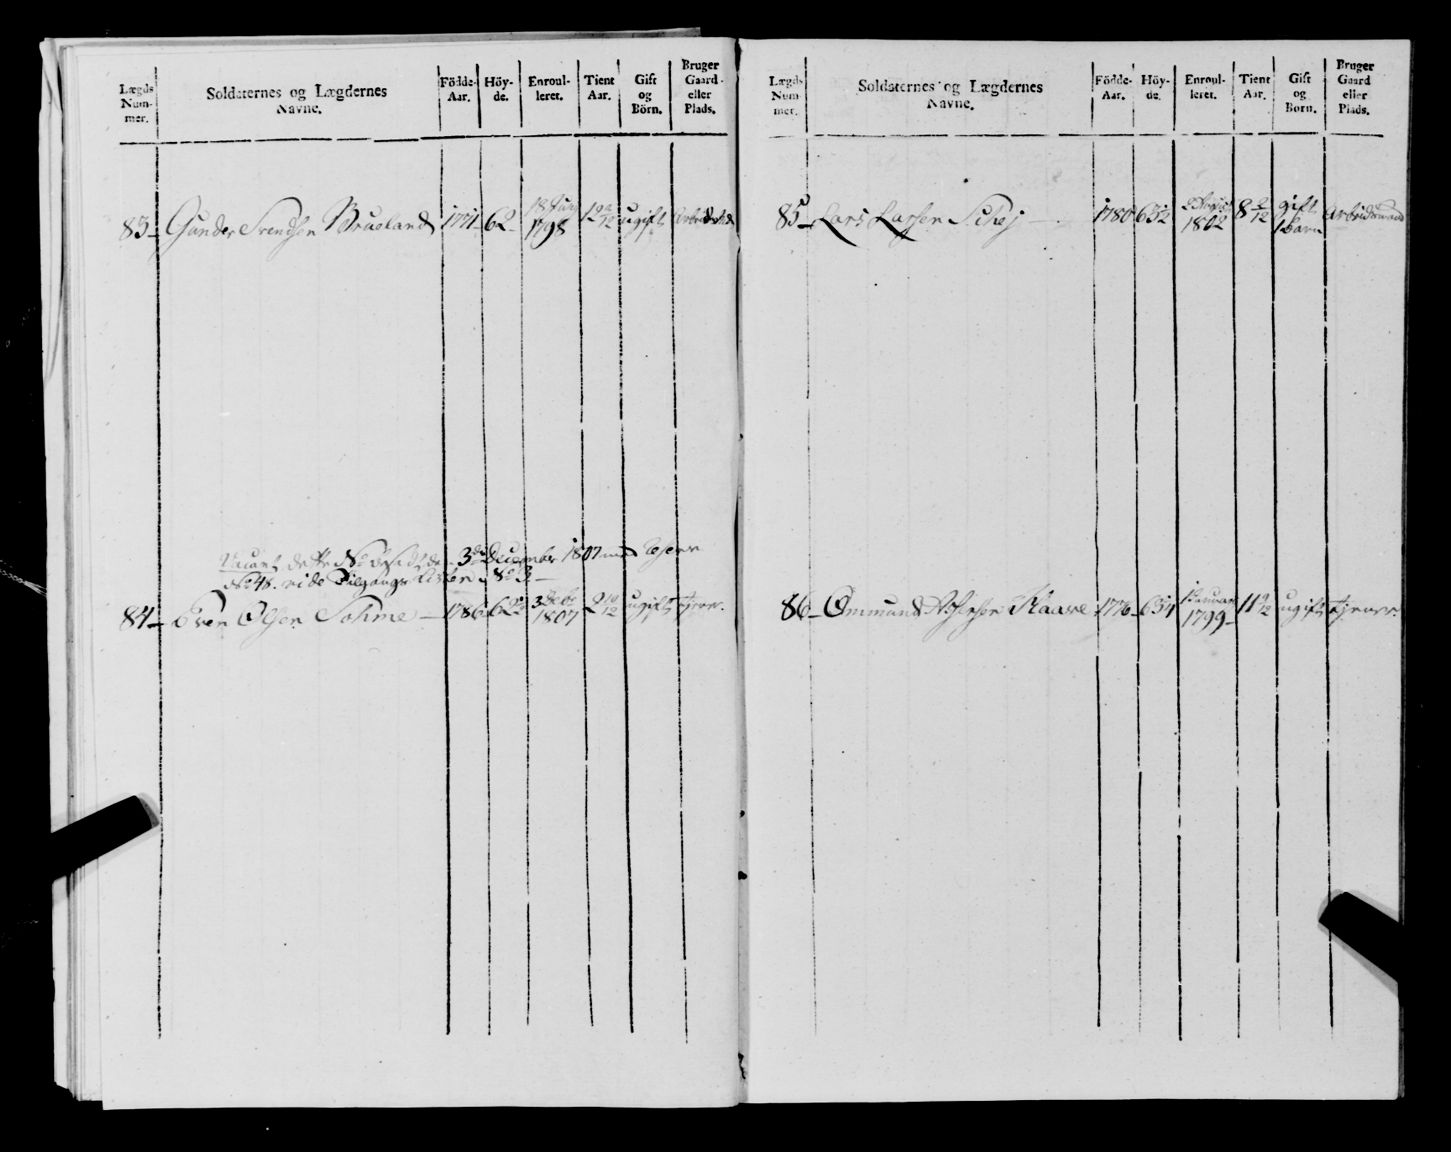 Lægds Num- mer.
Soldaternes og Lægdernes Navne.
Födde- Aar.
Höy- de.
Enroul- leret.
Tient Aar.
Gift og Börn.
Bruger Gaard eller Plads.
83 Gunder Svendsen Brueland 1771 62 1798 10 2/12 ugift Arbeids
3de December 1807 med
No 48. vide Tilgangs Listen No 3
84 Sven Olsen Somme 1786 62 3 Decbr 1807 2 10/12 ugift tjener.
Lægds Num- mer.
Soldaternes og Lægdernes Navne.
Födde- Aar.
Höy- de.
Enroul- leret.
Tient Aar.
Gift og Born.
Bruger Gaard eller Plads.
85 Lars Larsen Schej 1780 63 1/2 1802 8 gift 1 barn Arbeidsmand
86 Ommund 1776 1 Januar 1799 11 9/12 ugift tjener.